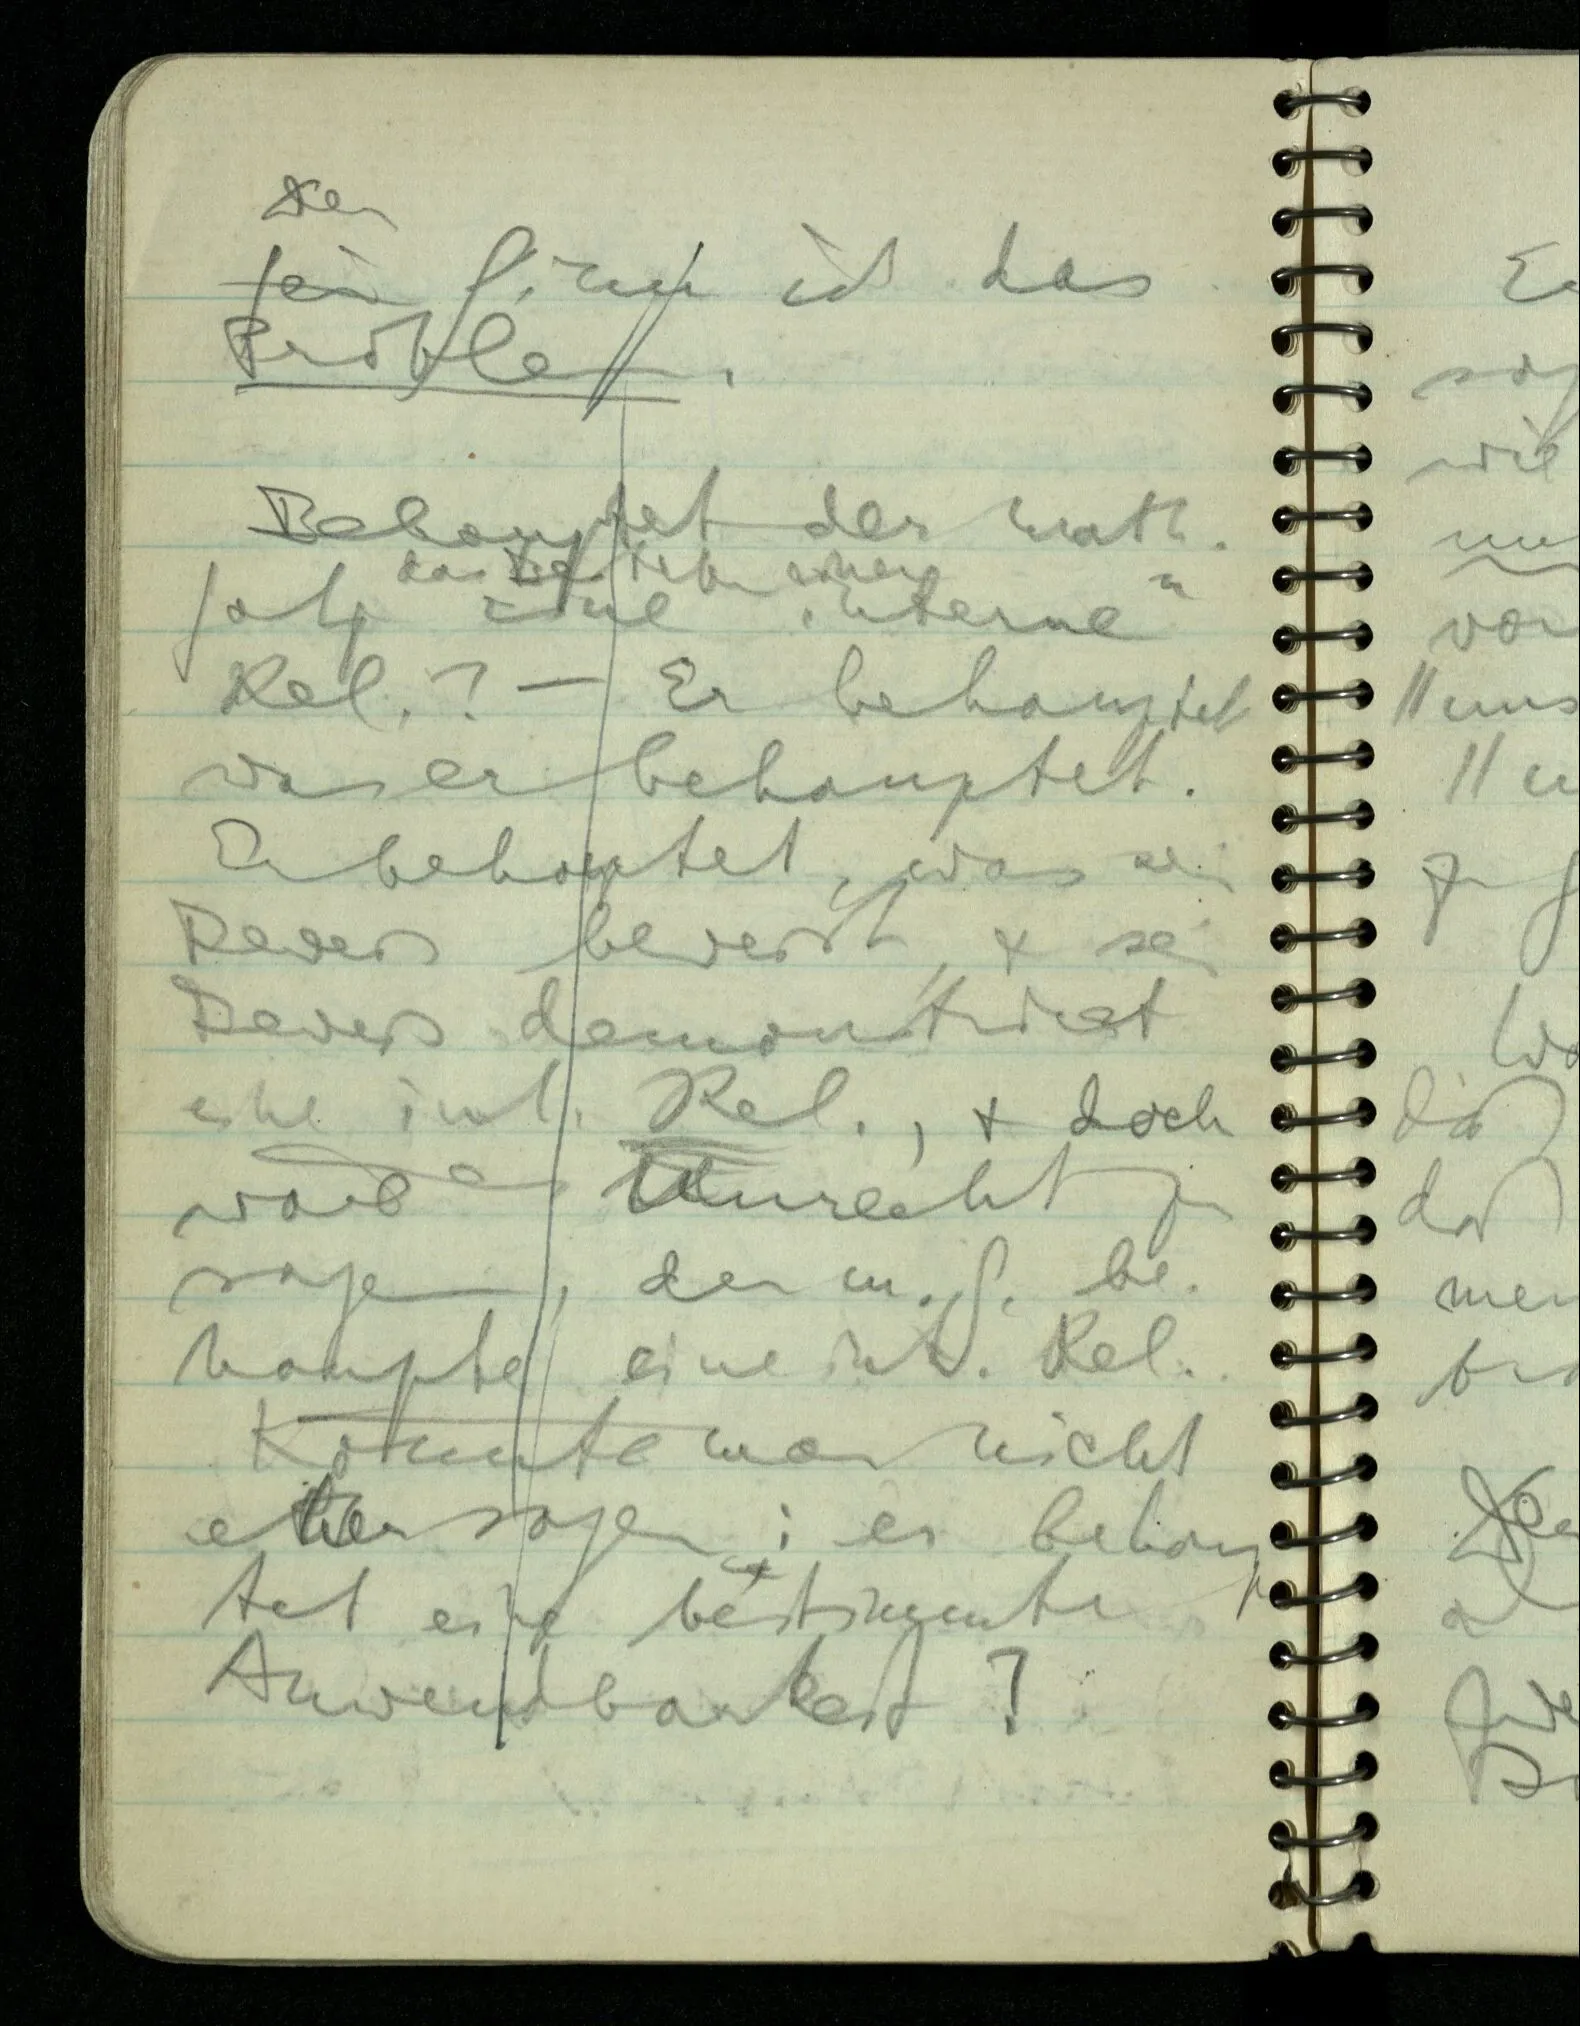 Der
sein Sinn ist das
Problem.
Behauptet der math.
das Bestehen einer
Satz eine interne"
Rel.? — Er behauptet
was er behauptet.
Er behauptet, was sein
Beweis beweist, & sein
Beweis demonstriert
eine int. Rel., & doch
wäre es Unrecht zu
sagen, der m. S. be-
haupte eine int. Rel..
Könnte man nicht
eher sagen: er behaup-
tet eine bestimmte
Anwendbarkeit?